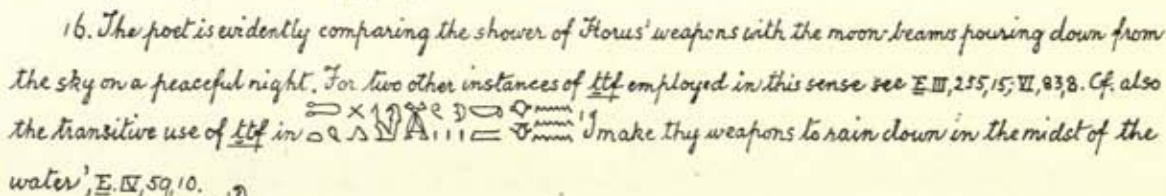 16. The poet is evidently comparing the shower of Horus' weapons with the moon-beams pouring down from
the sky on a peaceful night. For two other instances of ttf employed in this sense see E. III, 255, 15; VI, 83, 8. Cf. also
the transitive use of ttf in 'I make thy weapons to rain down in the midst of the
water', E. IV, 59, 10.